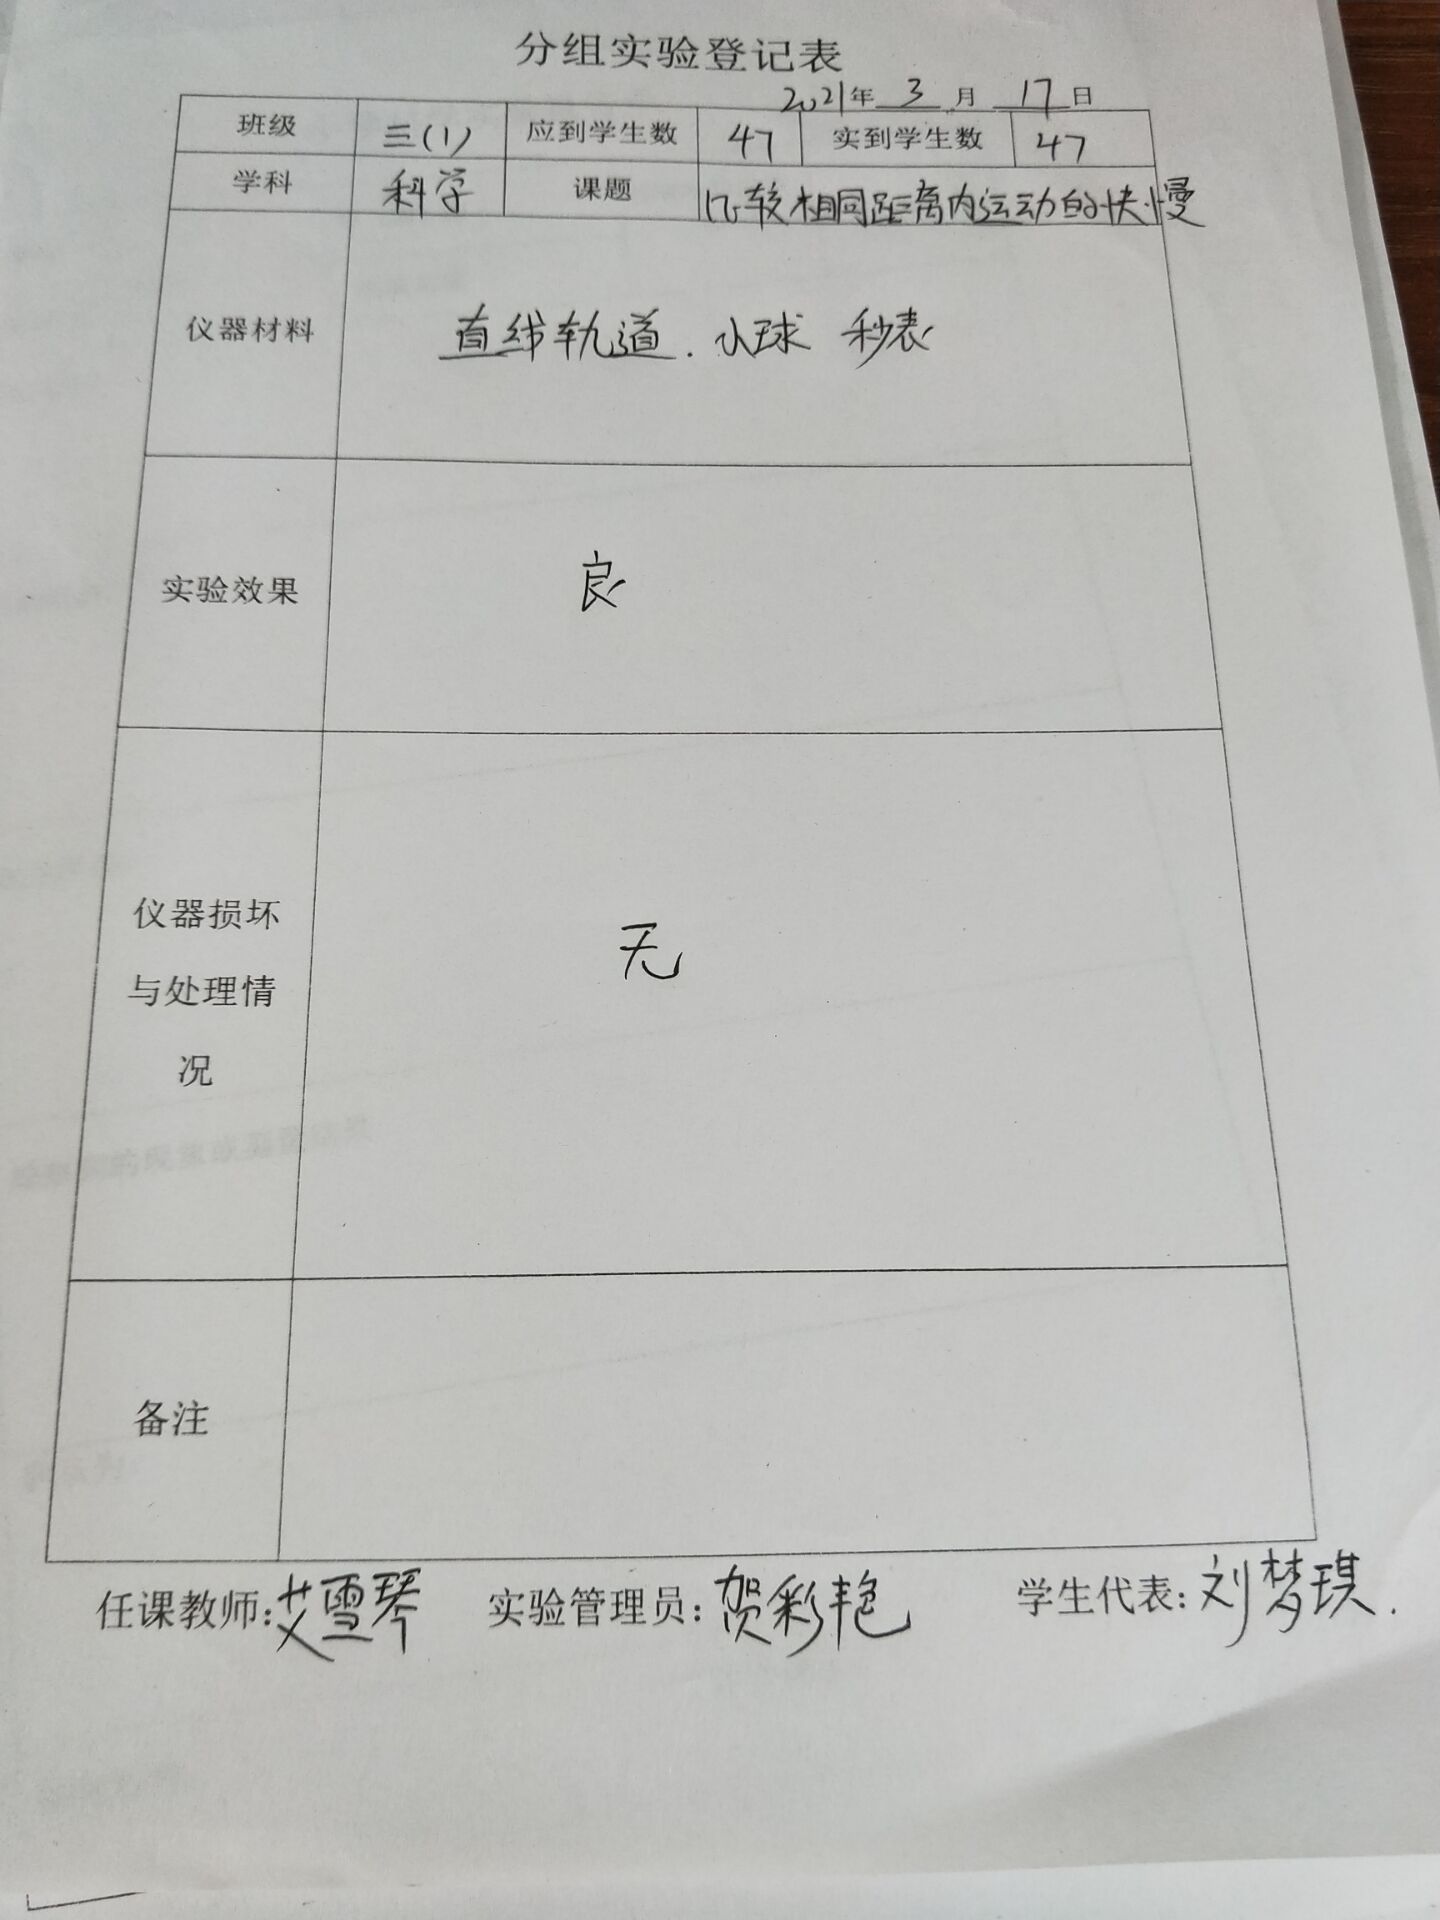 分组实验登记表
2021年 3 月 17 日
班级 三(1) 应到学生数 47 实到学生数 47
学科 科学 课题 比较相同距离内运动的快慢
仪器材料 直线轨道. 小球 秒表
实验效果 良
仪器损坏
与处理情
况
无
备注
任课教师:艾雪琴 实验管理员:贺彩艳 学生代表:刘梦琪.